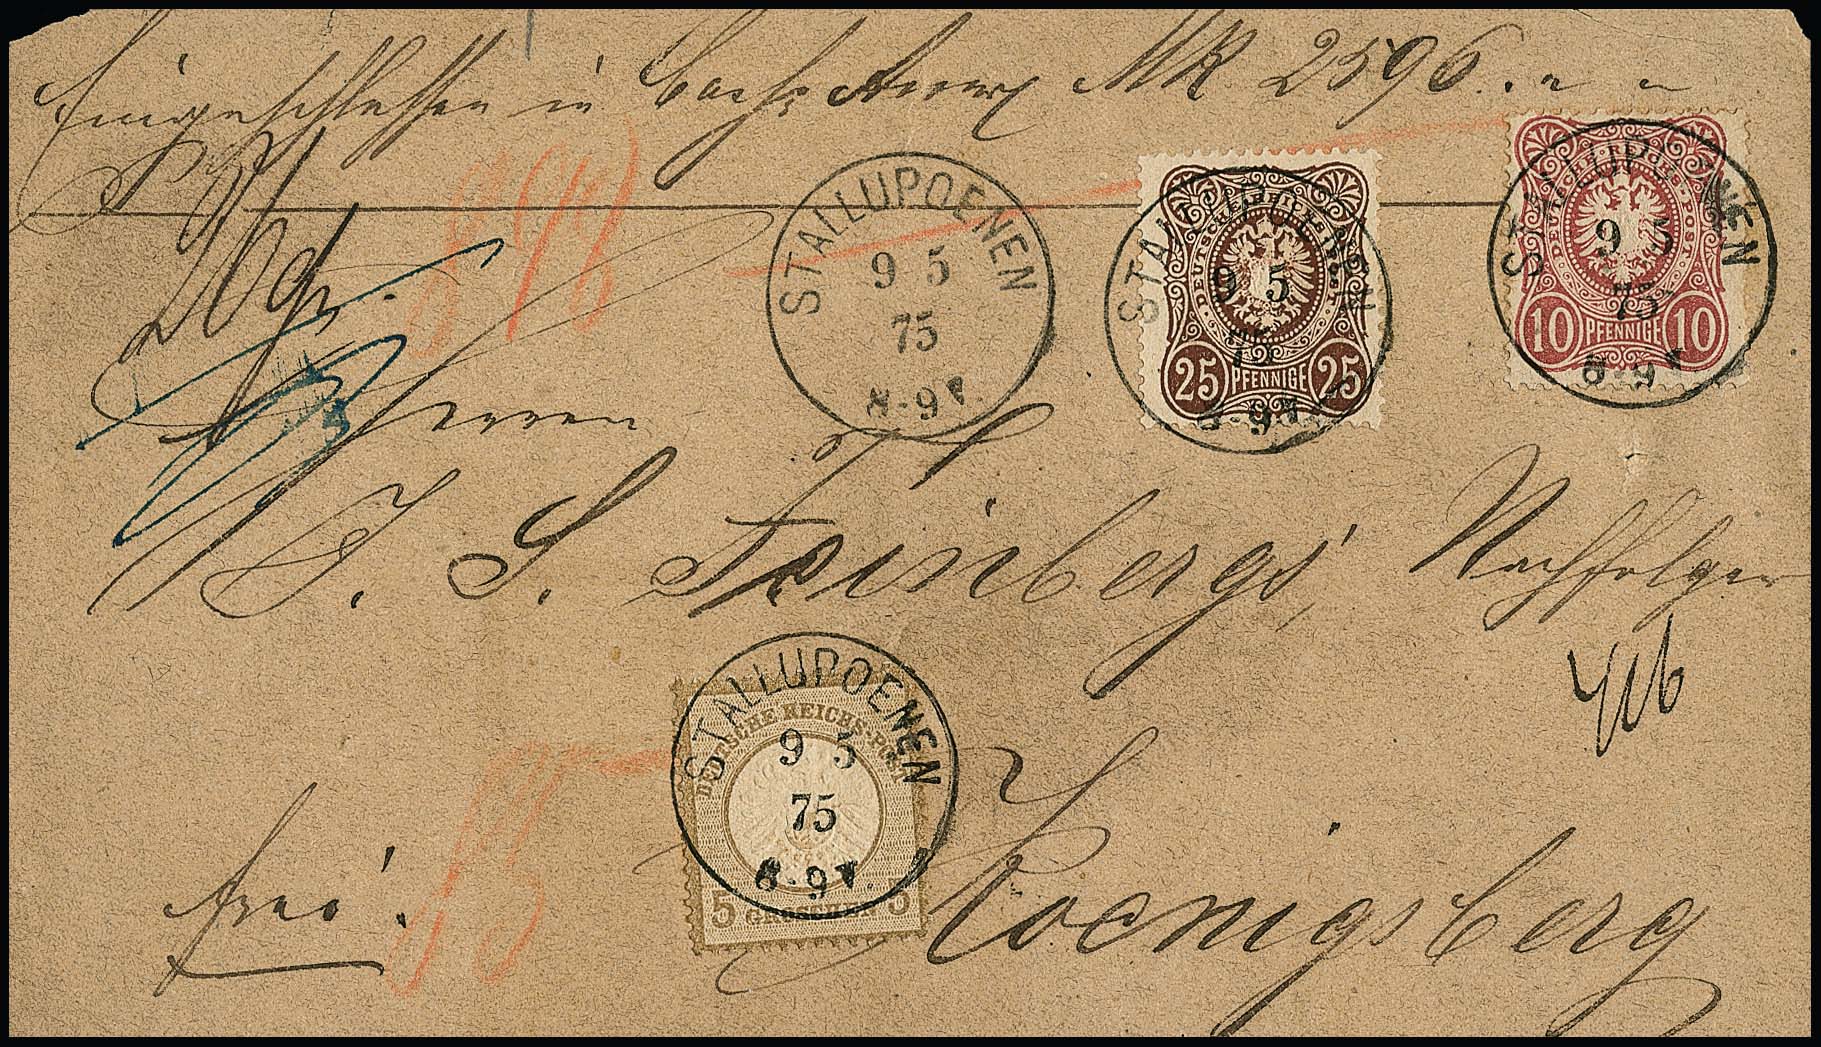 Eingeschlossen in Mk 2596.
STALLUPOENEN
9 5
75
8-9 V.
STALLUPOENEN
9 5
75
8-9 V.
DEUTSCHE REICHS-POST
25 PFENNIGE 25
STALLUPOENEN
9 5
75
8-9 V.
DEUTSCHE REICHS-POST
10 PFENNIGE 10
Herren
J. S. Feinbergs' Nachfolger
STALLUPOENEN
9 5
75
8-9 V.
DEUTSCHE REICHS-POST
5 GROSCHEN 5
frei.
Koenigsberg